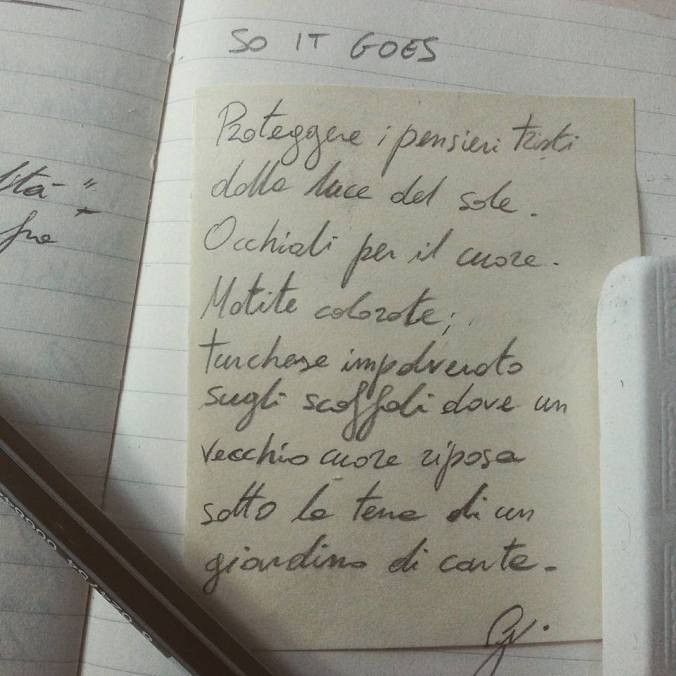 SO IT GOES
Proteggere i pensieri tristi
dalla luce del sole.
Occhiali per il cuore.
Matite colorate;
turchese impolverato
sugli scaffali dove un
vecchio cuore riposa
sotto la terra di un
giardino di carta.
G.